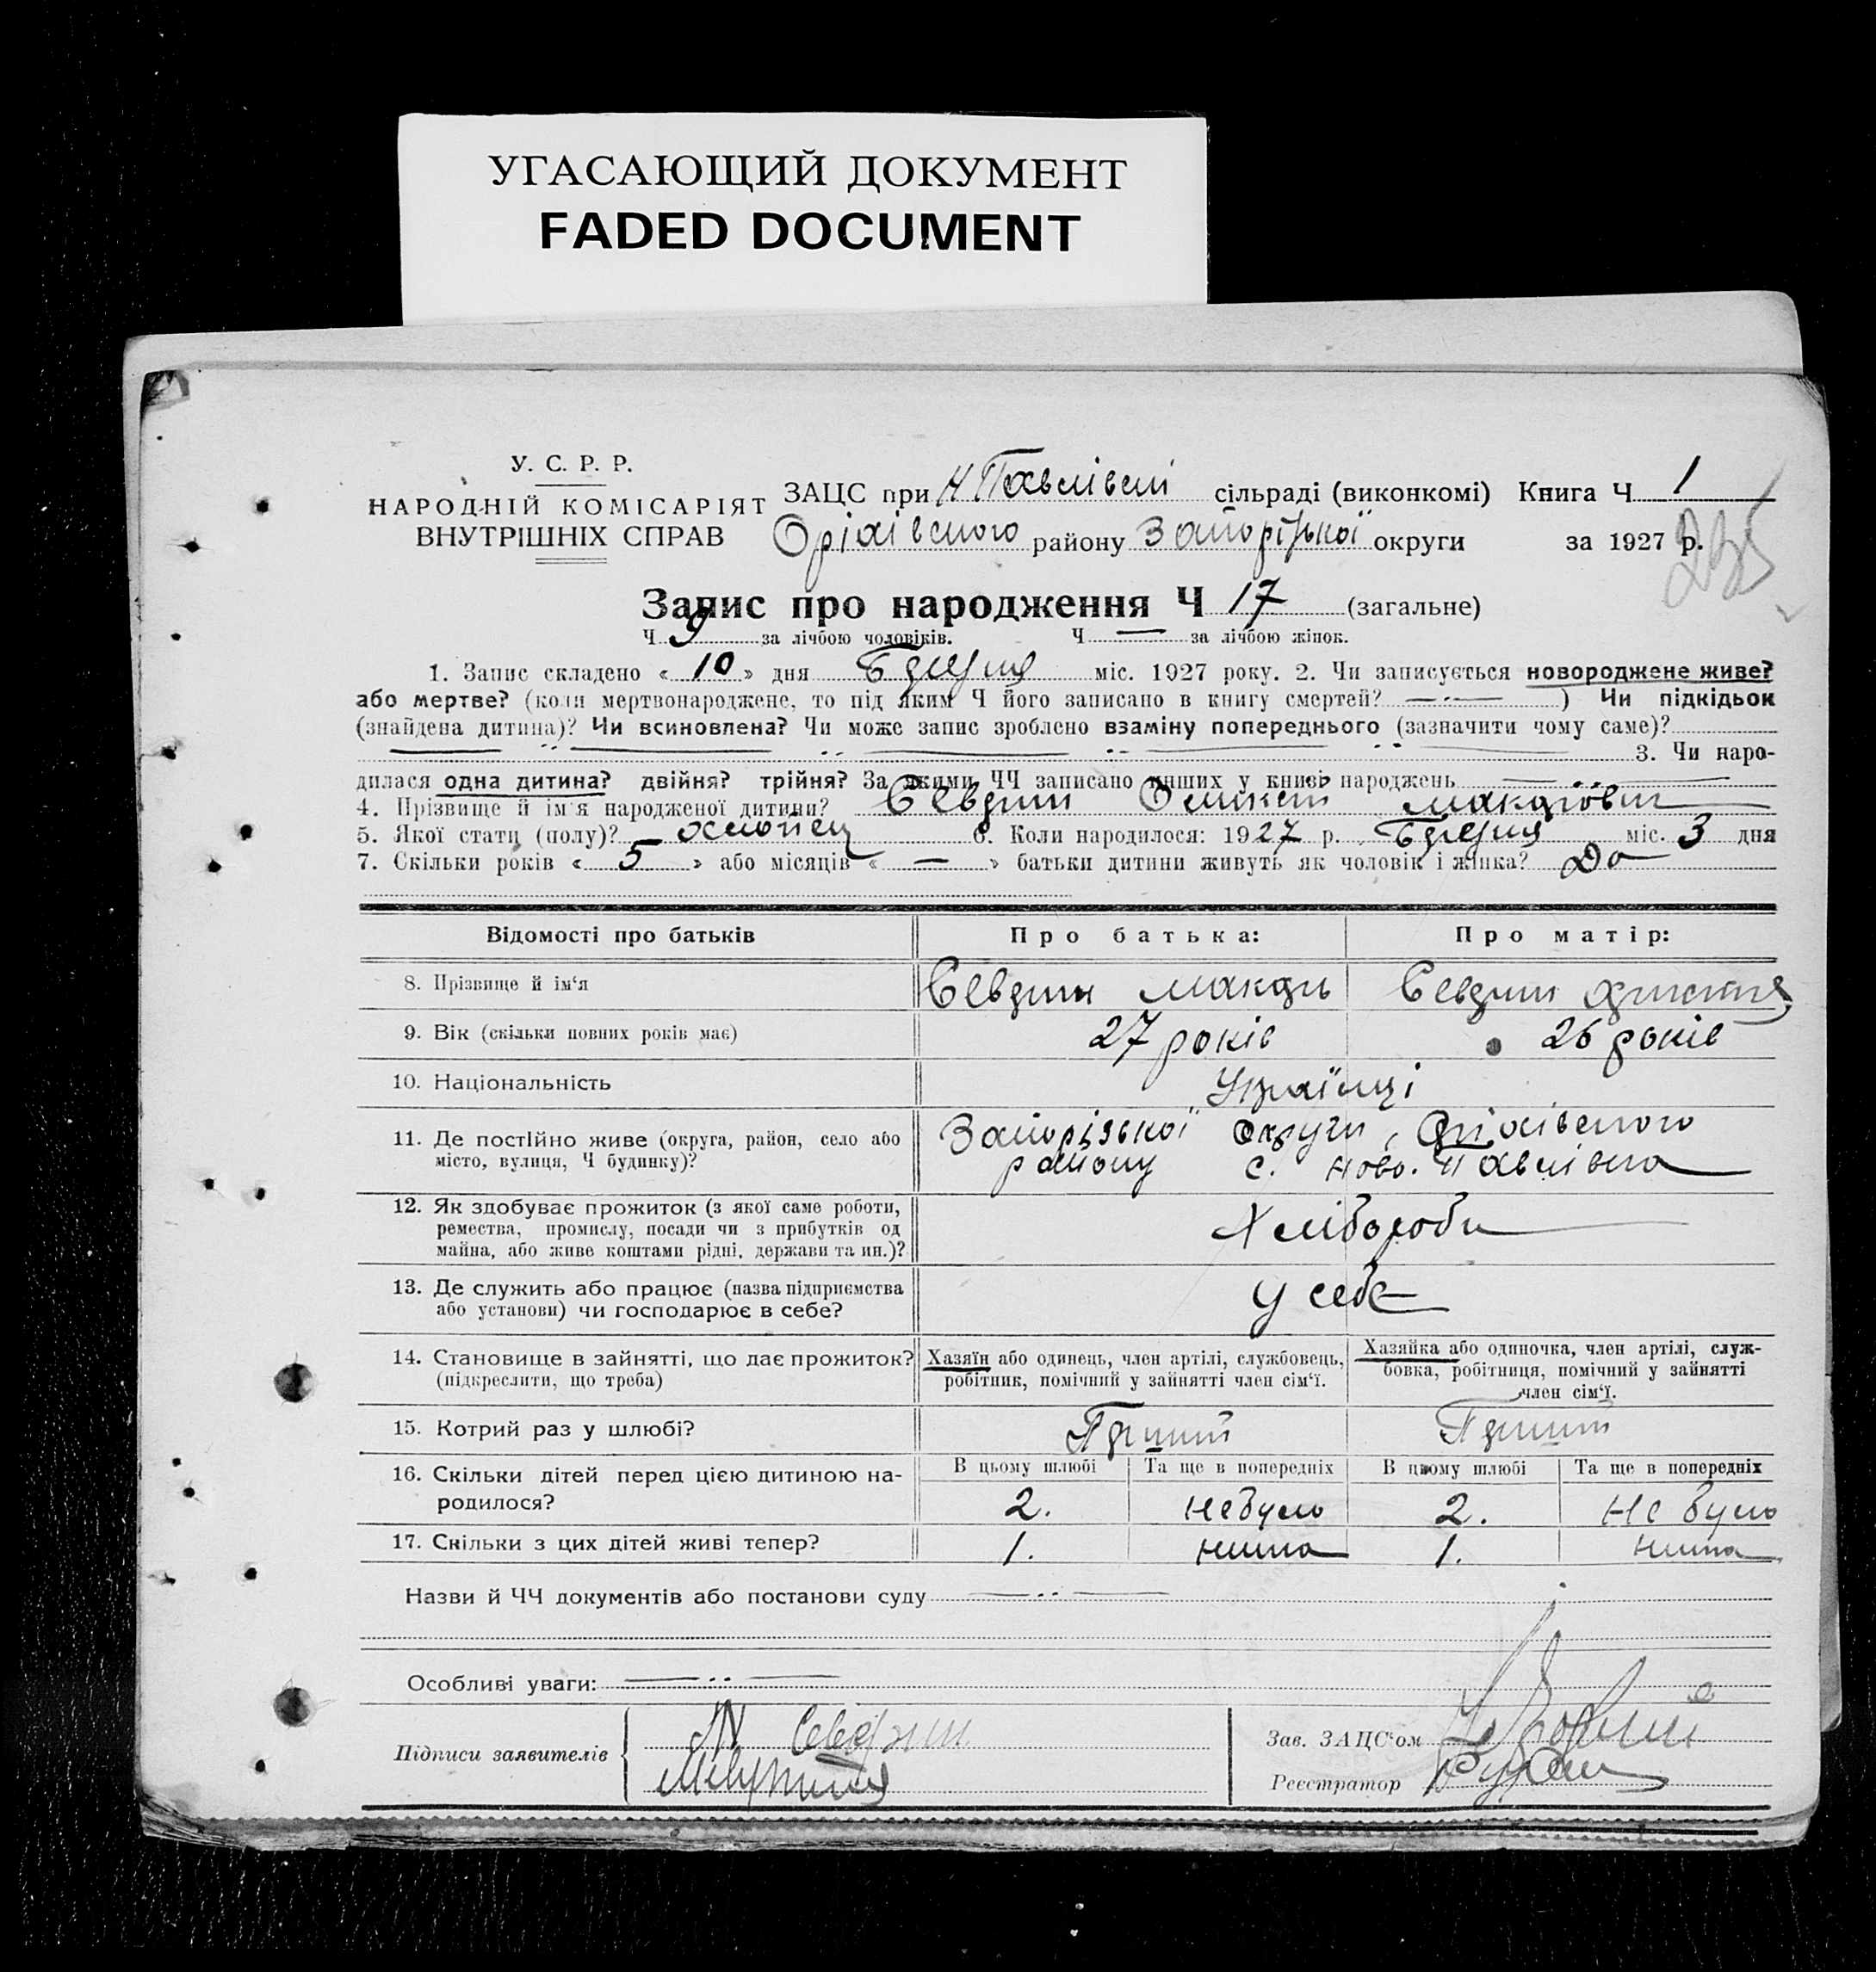 УГАСАЮЩИЙ ДОКУМЕНТ
FADED DOCUMENT
У. С. Р. Р.
НАРОДНІЙ КОМІСАРІЯТ
ВНУТРІШНІХ СПРАВ
ЗАЦС при Н Павлівці сільраді (виконкомі) Книга Ч 1
Оріхівського району Запорізької округи за 1927 р.
235
Запис про народження Ч 17 (загальне)
Ч 9 за лічбою чоловіків. Ч — за лічбою жінок.
1. Запис складено « 10 » дня міс. 1927 року. 2. Чи записується новороджене живе?
або мертве? (коли мертвонароджене, то під яким Ч його записано в книгу смертей? ) Чи підкідьок
(знайдена дитина)? Чи всиновлена? Чи може запис зроблено взаміну попереднього (зазначити чому саме)?
3. Чи наро-
дилася одна дитина? двійня? трійня? За якими ЧЧ записано инших у книзі народжень
4. Прізвище й ім'я народженої дитини?
5. Якої стати (полу)? хлопец 6. Коли народилося: 1927 р. міс. 3 дня
7. Скільки років « 5 » або місяців « — » батьки дитини живуть як чоловік і жінка? Да
Відомості про батьків Про батька: Про матір:
8. Прізвище й ім'я
9. Вік (скільки повних років має) 27 років 26 років
10. Національність Українці
11. Де постійно живе (округа, район, село або Запорізької округи, Оріхівського
місто, вулиця, Ч будинку)? району с. Ново. Павлівка
12. Як здобуває прожиток (з якої саме роботи,
ремества, промислу, посади чи з прибутків од Хлібороби
майна, або живе коштами рідні, держави та ин.)?
13. Де служить або працює (назва підприємства у себе
або установи) чи господарює в себе?
14. Становище в зайнятті, що дає прожиток? Хазяїн або одинець, член артілі, службовець, Хазяйка або одиночка, член артілі, служ-
(підкреслити, що треба) робітник, помічний у зайнятті член сім'ї. бовка, робітниця, помічний у зайнятті
член сім'ї.
15. Котрий раз у шлюбі? Перший Перший
16. Скільки дітей перед цією дитиною на- В цьому шлюбі Та ще в попередніх В цьому шлюбі Та ще в попередніх
родилося? 2. небуло 2. не було
17. Скільки з цих дітей живі тепер? 1. нима 1. нима
Назви й ЧЧ документів або постанови суду
Особливі уваги:
Підписи заявителів
Зав. ЗАЦС'ом
Реєстратор